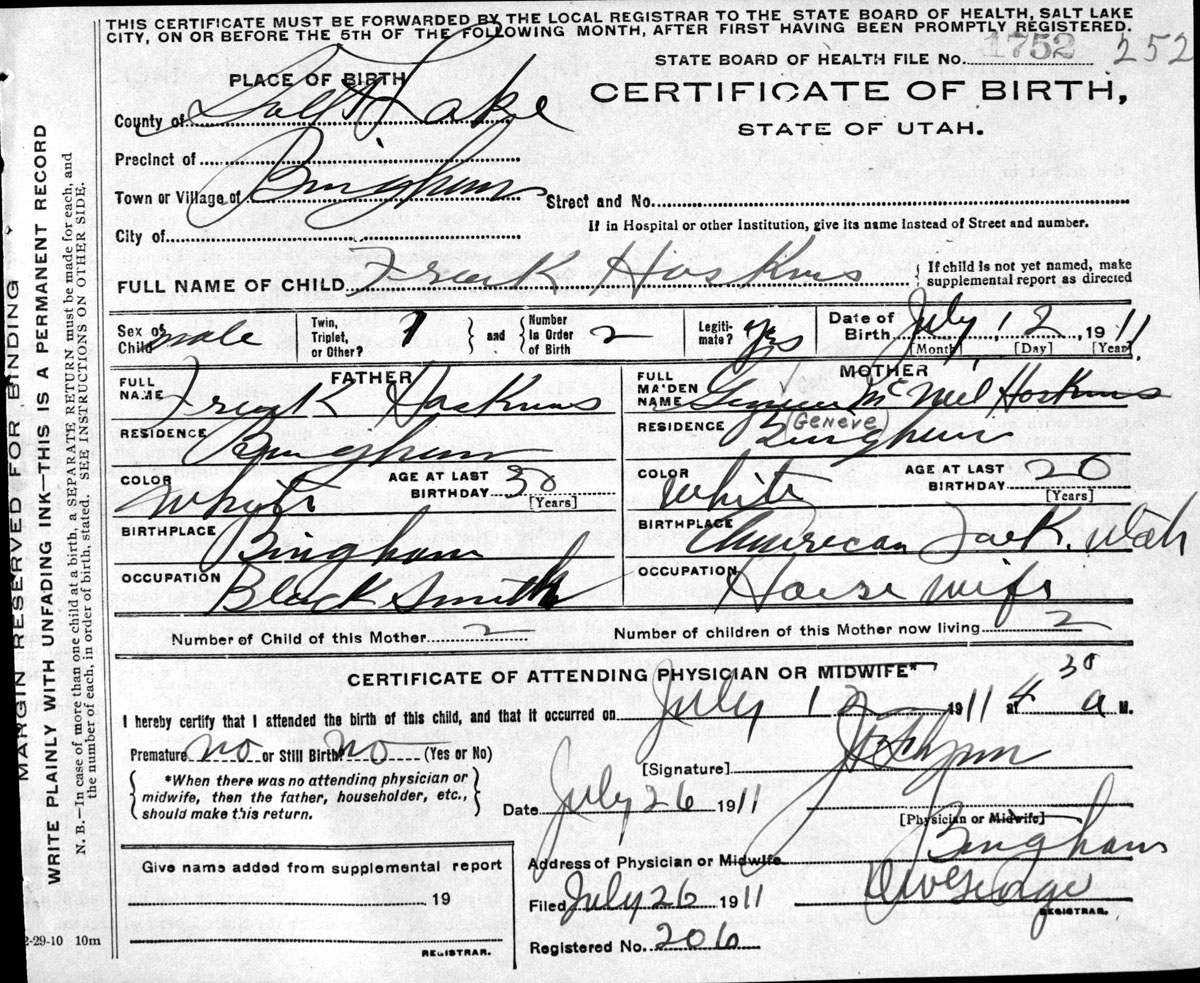 THIS CERTIFICATE MUST BE FORWARDED BY THE LOCAL REGISTRAR TO THE STATE BOARD OF HEALTH, SALT LAKE
CITY, ON OR BEFORE THE 5TH OF THE FOLLOWING MONTH, AFTER FIRST HAVING BEEN PROMPTLY REGISTERED.
STATE BOARD OF HEALTH FILE NO. 1752 252
PLACE OF BIRTH
CERTIFICATE OF BIRTH,
County of Salt Lake
STATE OF UTAH.
Precinct of
Town or Village of Bingham
Street and No.
City of
If in Hospital or other Institution, give its name instead of Street and number.
FULL NAME OF CHILD Frank Hoskins
{ If child is not yet named, make
supplemental report as directed
Sex of Child male
Twin, Triplet, or Other? 1 } and { Number in Order of Birth 2
Legitimate? yes
Date of Birth July, 12, 1911
[Month] [Day] [Year]
FATHER
FULL NAME Frank Hoskins
RESIDENCE Bingham
COLOR White
AGE AT LAST BIRTHDAY 30
[Years]
BIRTHPLACE Bingham
OCCUPATION Black Smith
MOTHER
FULL MAIDEN NAME McNeil Hoskins
(Geneve)
RESIDENCE Bingham
COLOR White
AGE AT LAST BIRTHDAY 20
[Years]
BIRTHPLACE American Fork. Utah
OCCUPATION House wife
Number of Child of this Mother 2
Number of children of this Mother now living 2
CERTIFICATE OF ATTENDING PHYSICIAN OR MIDWIFE*
I hereby certify that I attended the birth of this child, and that it occurred on July 12 1911 at 4 30 a M.
Premature no or Still Birth? no (Yes or No)
{ *When there was no attending physician or
midwife, then the father, householder, etc.,
should make this return. }
[Signature]
Date July 26 1911
[Physician or Midwife]
Address of Physician or Midwife Bingham
Filed July 26 1911
George
REGISTRAR.
Registered No. 206
Give name added from supplemental report
19
REGISTRAR.
2-29-10 10m
MARGIN RESERVED FOR BINDING
WRITE PLAINLY WITH UNFADING INK—THIS IS A PERMANENT RECORD
N. B.—In case of more than one child at a birth, a SEPARATE RETURN must be made for each, and
the number of each, in order of birth, stated. SEE INSTRUCTIONS ON OTHER SIDE.